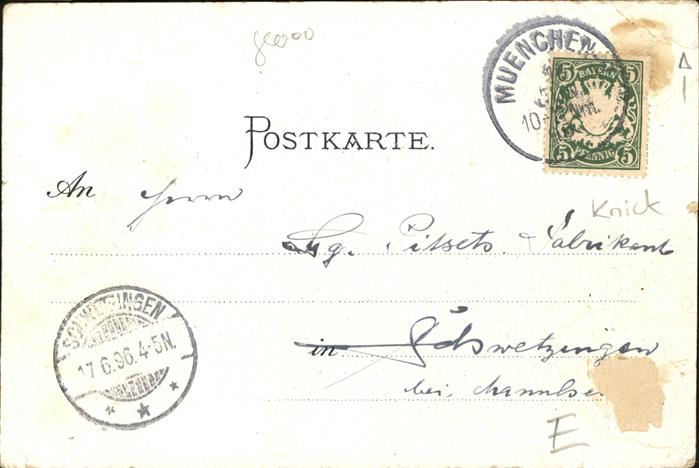 MUENCHEN
5 BAYERN 5
10
5 PFENNIG 5
POSTKARTE.
An Herrn
Knick
Fabrikant
SCHWETZINGEN
17.6.96.4-5N.
in Schwetzingen
bei
E